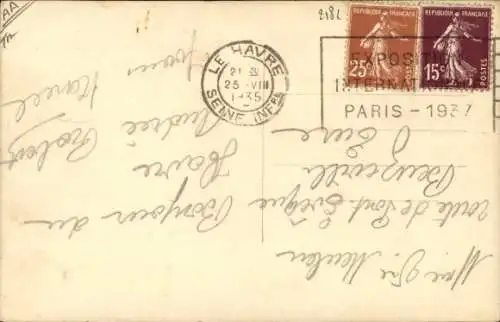 AA
2182
REPUBLIQUE FRANÇAISE
25c
POSTES
REPUBLIQUE FRANÇAISE
15c
POSTES
LE HAVRE
21
25 · VIII
1935
SEINE INFRE
EXPOSITION
INTERNA
PARIS - 1937
Bonjour du
Havre
Andrée
Robert
Marcel
Mme Vve Meulen
route de Pont Evêque
Beuzeville
Eure